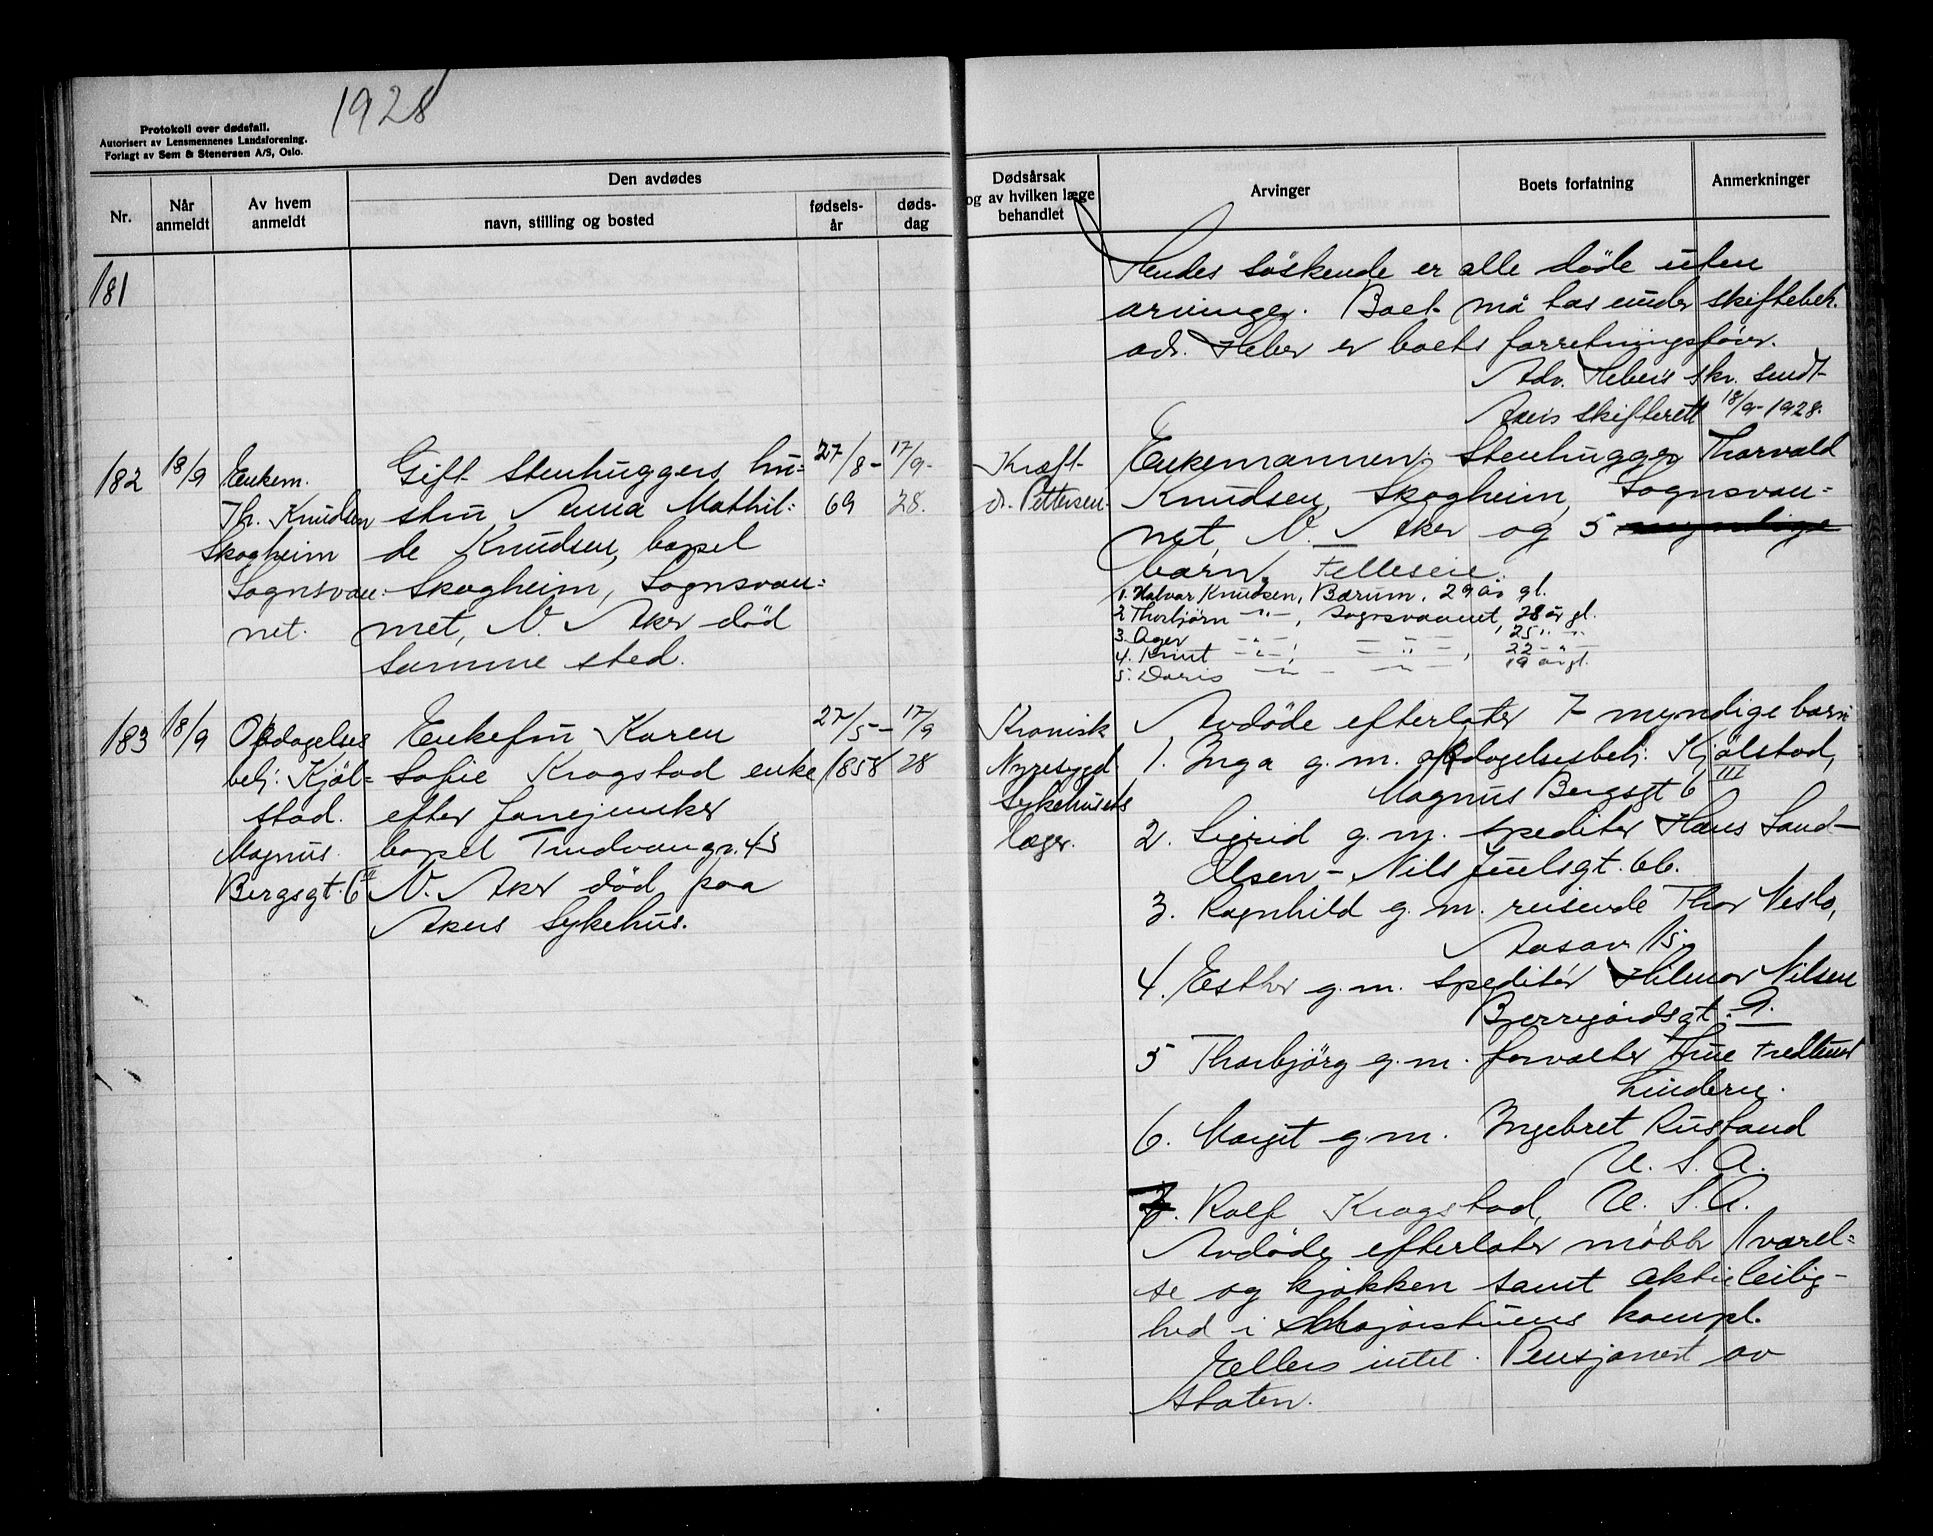 1928
Protokoll over dødsfall.
Autorisert av Lensmennenes Landsforening.
Forlagt av Sem & Stenersen A/S, Oslo.
Nr.
Når anmeldt
Av hvem anmeldt
Den avdødes
navn, stilling og bosted
fødsels-år
døds-dag
Dødsårsak og av hvilken læge behandlet
Arvinger
Boets forfatning
Anmerkninger
181
Hendes söskende er alle döde uten
arvinger. Boet må tas under skiftebeh.
adv. Heber er boets forretningsförer.
Adv. Hebers skr. sendt
Akers skifterett 18/9-1928.
182
18/9
Enkem.
Th. Knudsen
Skogheim
Sognsvan-
net.
Gift Stenhuggers hu-
stru Anna Mathil-
de Knudsen, bopel
Skogheim, Sognsvan-
net, V. Aker död
samme sted.
27/8-
69
17/9-
28.
Kræft-
dr. Pettersen
Enkemannen, Stenhugger Thorvald
Knudsen, Skogheim, Sognsvan-
net, V. Aker og 5 myndige
barn. Felleseie.
1. Halvar Knudsen, Bærum, 29 år gl.
2. Thorbjörn -"- , Sognsvannet, 28 år gl.
3. Ager -"- -"- , 25 " -"-
4. Knut -"- , -"- , 22 -"-
5. Doris -"- -"- 19 år gl.
183
18/9
Opdagelses
betj: Kjöl-
stad.
Magnus
Bergsgt. 6 III
Enkefru Karen
Sofie Kragstad enke
efter
bopel Tindvangn. 45
V. Aker död paa
Akers Sykehus.
27/5-
1858
17/9
28
Kronisk
Nyresygd
Sykehusets
læger.
Avdöde efterlater 7 myndige barn
1. Inga g.m. opdagelsesbetj: Kjölstad,
Magnus Bergsgt 6 III
2. Sigrid g.m. speditör Hans Sand-
Olsen - Nils Juelsgt. 66.
3. Ragnhild g.m. reisende Thor Neslo,
15.
4. Esther g.m. Speditör Hilmar Nilsen
Bjerregårdsgt. 9.
5 Thorbjörg g.m. forvalter
Lindern.
6. Margit g.m. Ingebret Rustand
U. S. A.
7. Rolf Kragstad, U. S. A.
Avdöde efterlater möbler 1 værel-
se og kjökken samt aktieleilig-
hed i Majorstuens kompl.
Ellers intet. Pensjonert av
staten.